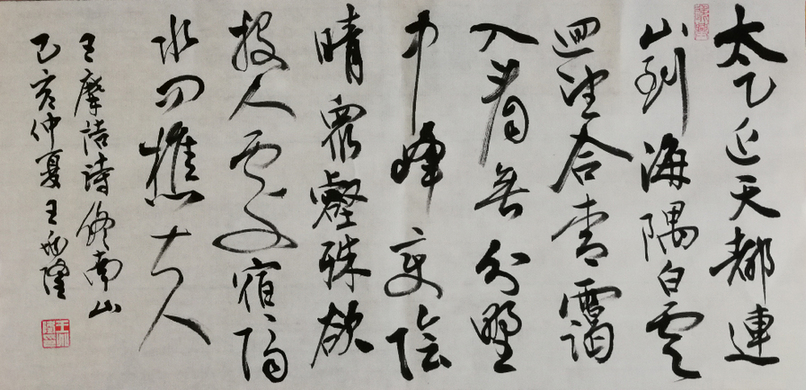 太乙近天都連
山到海隅白雲
迴望合青靄
入看無分野
中峰變陰
晴眾壑殊欲
投人處宿隔
水問樵夫
王摩詰詩終南山
己亥仲夏王隆